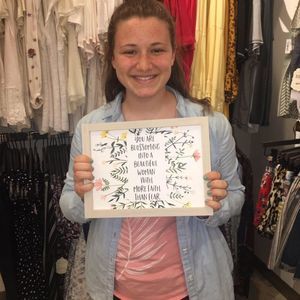 YOU ARE
BLOSSOMING
INTO A
BEAUTIFUL
WOMAN
WITH
MORE FAITH
THAN FEAR